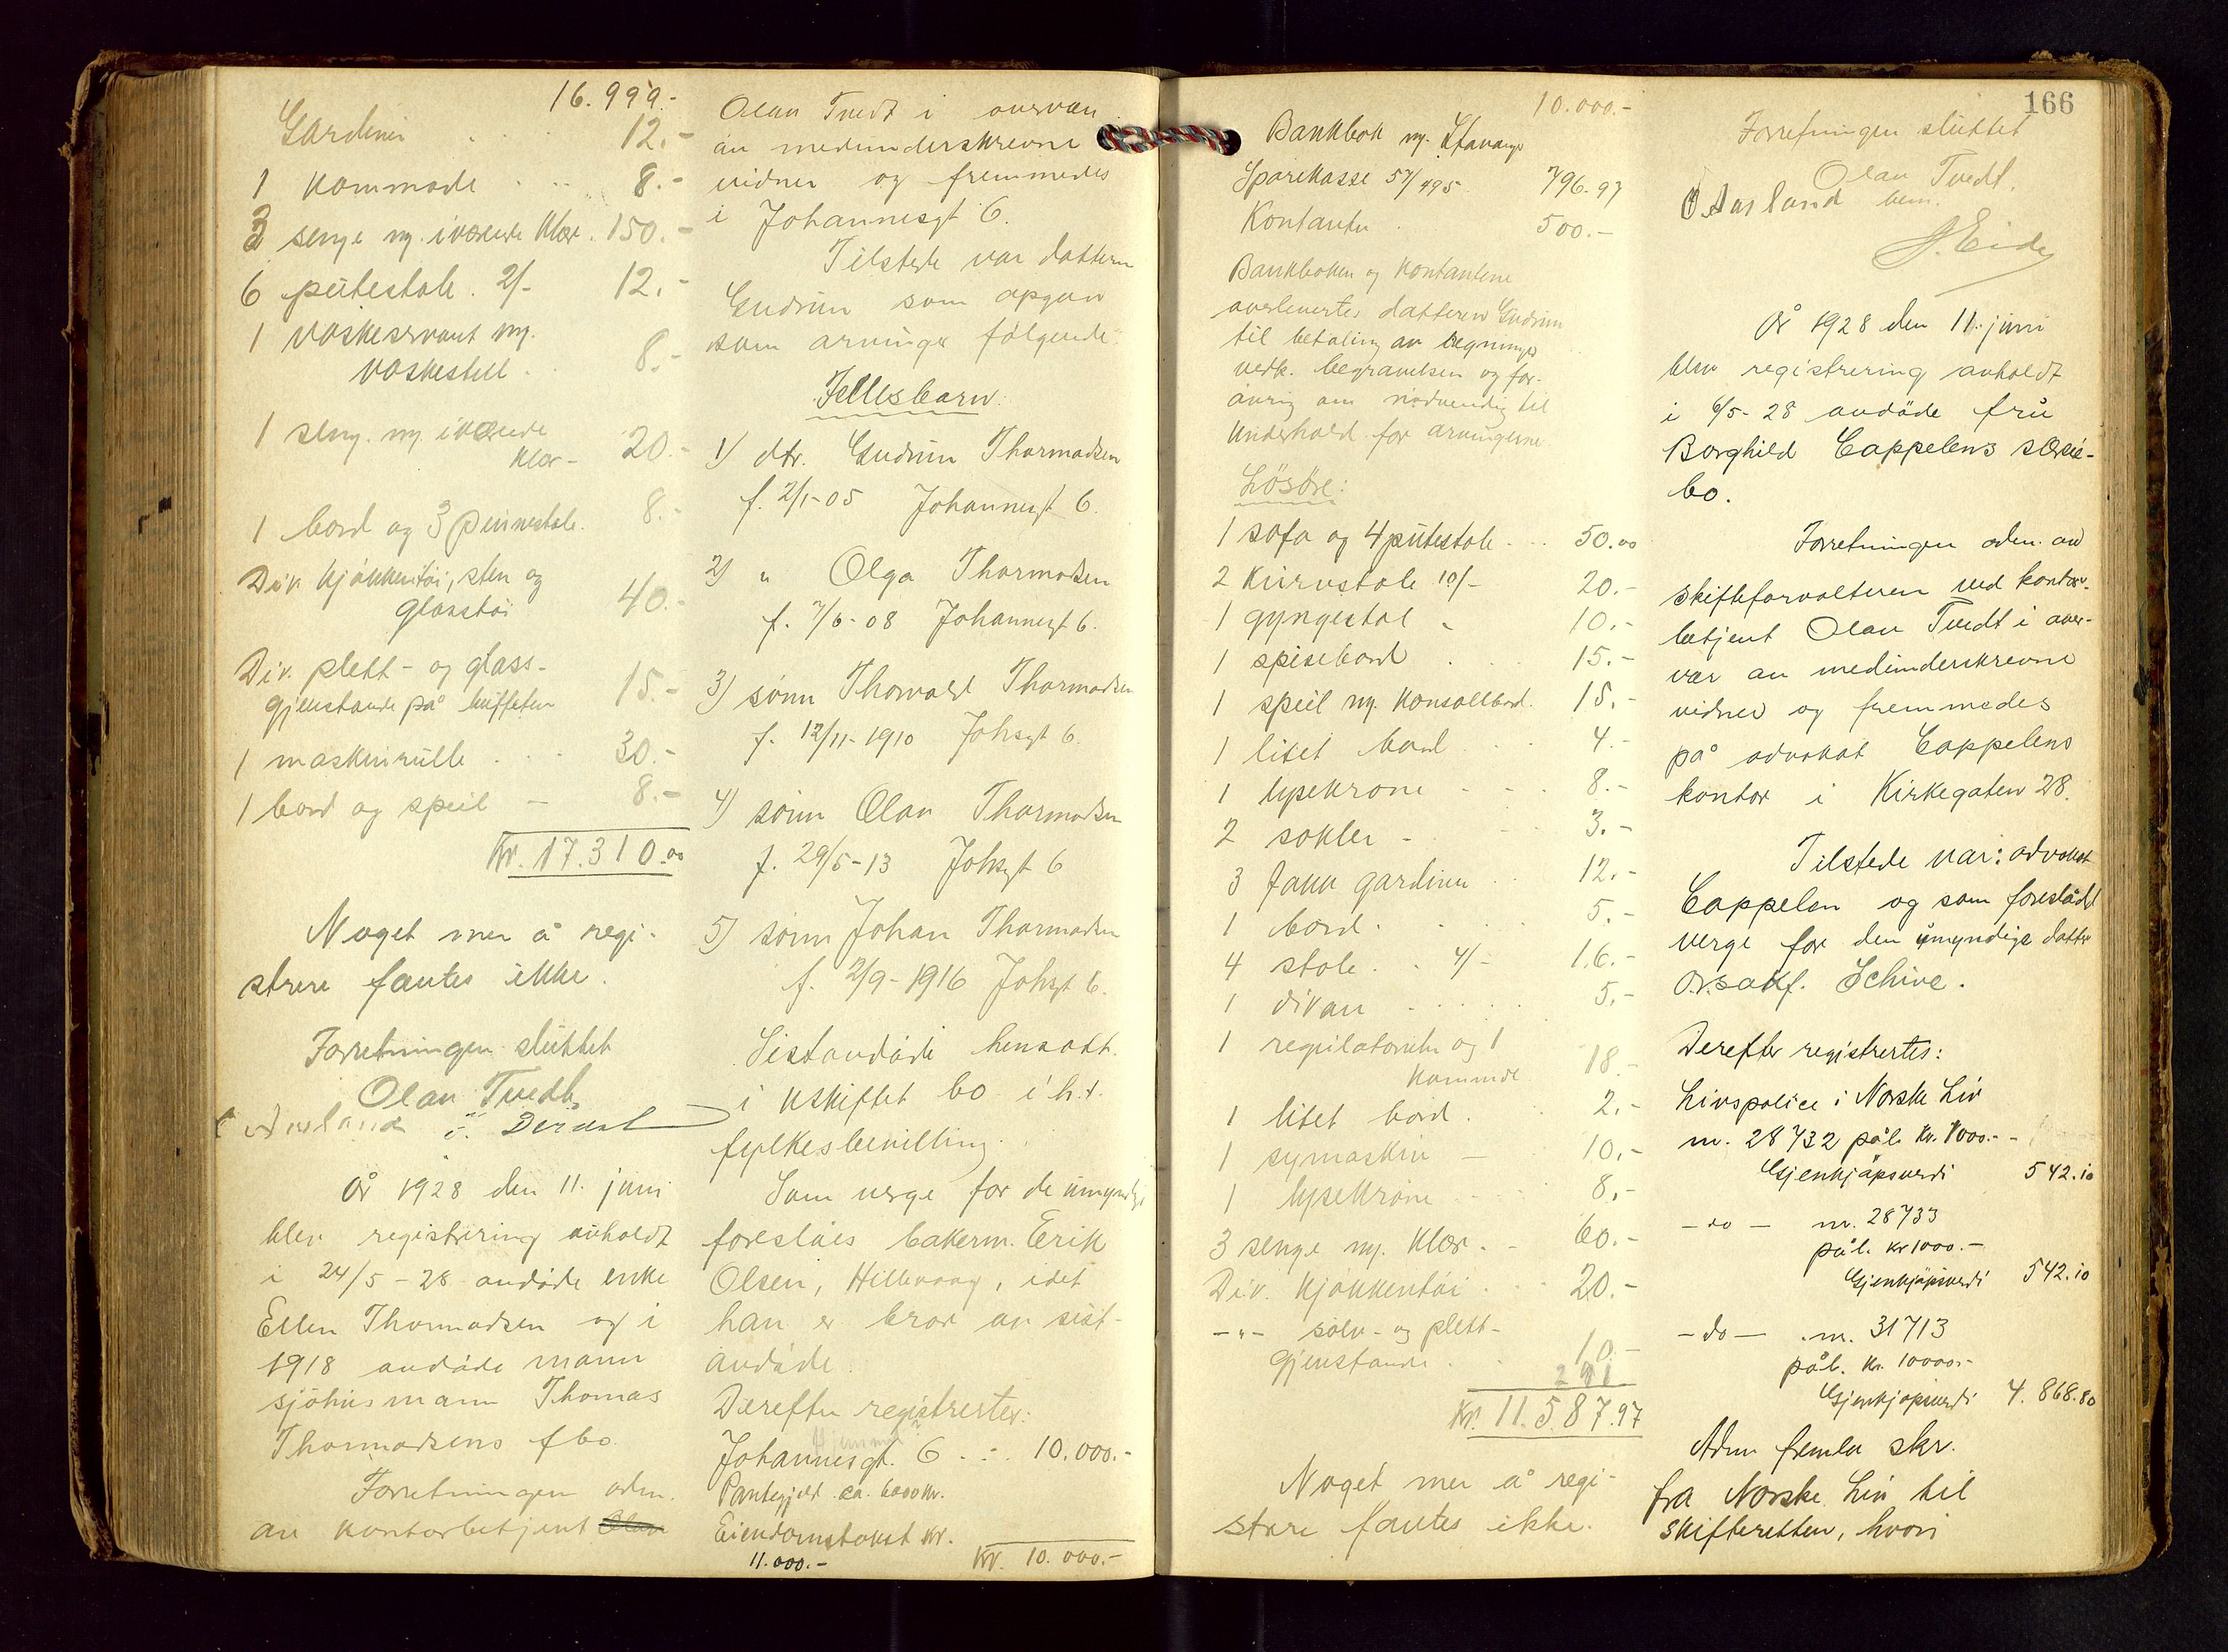 16.999.-
Gardiner . . . 12.-
1 kommode . . . 8.-
3 senge m. iværende klær . 150.-
6 putestole . 2/- 12.-
1 vaskeservant m.
vaskestell . 8.-
1 seng m. iværende
klær - 20.-
1 bord og 3 pinnestole. 8.-
Div. kjökkentöi, sten og
glasstöi 40.-
Div. plett- og glass-
gjenstande på buffeten 15.-
1 maskinrulle . . . 30.-
1 bord og speil - 8.-
Kr. 17.310.00
Noget mer å regi-
strere fantes ikke.
Forretningen sluttet
Olav Tvedt
Aasland
År 1928 den 11. juni
blev registrering avholdt
i 24/5-28 avdöde enke
Ellen Thormodsen og i
1918 avdöde mann
sjöhusmann Thomas
Thormodsens fbo.
Forretningen adm.
av kontorbetjent
Olav Tvedt i overvær
av medunderskrevne
vidner og fremmedes
i Johannesgt 6.
Tilstede var datteren
Gudrun som opgav
som arvinger følgende:
Fellesbarn:
1) dtr. Gudrun Thormodsen
f. 2/1-05 Johannesgt 6.
2) " Olga Thormodsen
f. 7/6-08 Johannesgt 6.
3) sönn Thorvald Thormodsen
f. 12/11-1910 Johsgt 6.
4) sönn Olav Thormodsen
f. 29/5-13 Johsgt 6
5) sönn Johan Thormodsen
f. 2/9-1916 Johsgt 6.
Sistavdöde hensatt
i uskiftet bo i h.t.
fylkesbevilling.
Som verge for de umyndige
foreslåes bakerm. Erik
Olsen, Hillevaag, idet
han er bror av sist-
avdöde.
Derefter registrertes:
Johannesgt. 6 . : 10.000.-
Pantegjeld ca. 6000 kr.
Eiendomstakst kr.
11.000.- Kr. 10.000.-
10.000.-
Bankbok m. Stavanger
Sparekasse 57/495 796.97
Kontanter . 500.-
Bankboken og kontantene
overlevertes datteren Gudrun
til betaling av regninger
vedk. begravelsen og for-
övrig om nödvendig til
underhold for arvingerne.
Lösöre:
1 sofa og 4 putestole . . . 50.00
2 kurvstole 10/- 20.-
1 gyngestol - 10.-
1 spisebord . . . 15.-
1 speil m. konsollbord. 15.-
1 litet bord . . . 4.-
1 lysekrone - - . 8.-
2 sokler - . - - 3.-
3 fann gardiner . . 12.-
1 bord. . . . 5.-
4 stole . . 4/- 16.-
1 divan . . . . 5.-
1 regulatorur og 1
kommode 18.-
1 litet bord. . . 2.-
1 symaskin - 10.-
1 lysekrone - . . . 8.-
3 senge m. klær . - 60.-
Div. kjökkentöi . . . 20.-
-"- sölv- og plett-
gjenstande . . 10.-
291
Kr. 11.587.97
Noget mer å regi-
strere fantes ikke.
166
Forretningen sluttet
Olav Tvedt.
O Aasland
J. Eide
År 1928 den 11. juni
blev registrering avholdt
i 6/5-28 avdöde fru
Borghild Cappelens særeie-
bo.
Forretningen adm. av
skifteforvalteren ved kontor-
betjent Olav Tvedt i over-
vær av medunderskrevne
vidner og fremmedes
på advokat Cappelens
kontor i Kirkegaten 28.
Tilstede var: advokat
Cappelen og som foreslådt
verge for den umyndige datter
o.r.sakf. Schive.
Derefter registrertes:
Livspolice i Norske Liv
nr. 28732 pål. kr. 1000.- -
Gjenkjöpsverdi 542.10
- do - nr. 28733
pål. kr 1000.-
Gjenkjöpsverdi 542.10
- do - nr. 31713
pål. kr. 10000.-
Gjenkjöpsverdi 4.868.80
Adv. fremla skr.
fra Norske Liv til
skifteretten, hvori